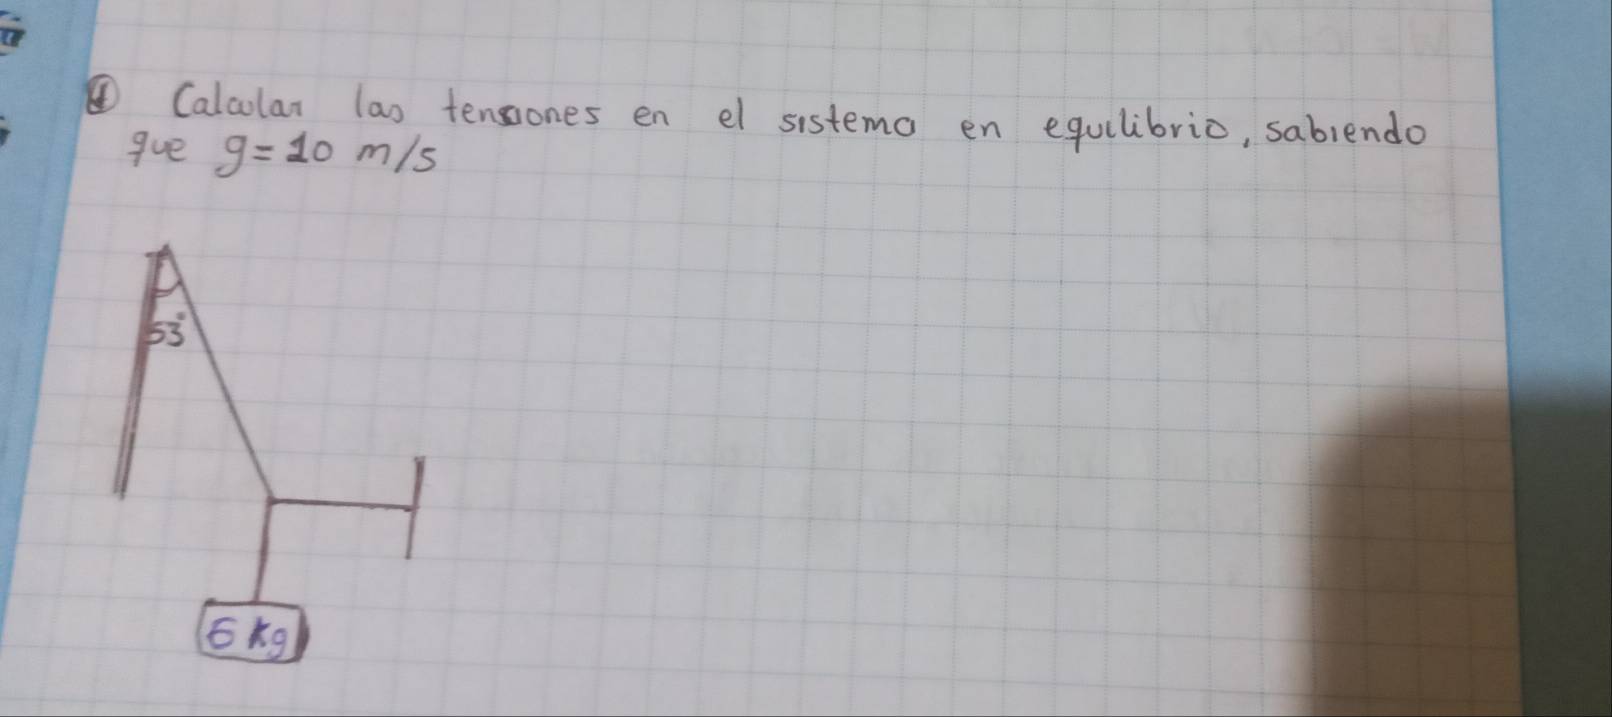 ④ Calcular las tensiones en el sistema en equilibrio, sabiendo
que g=10 m/s
53°
6 kg